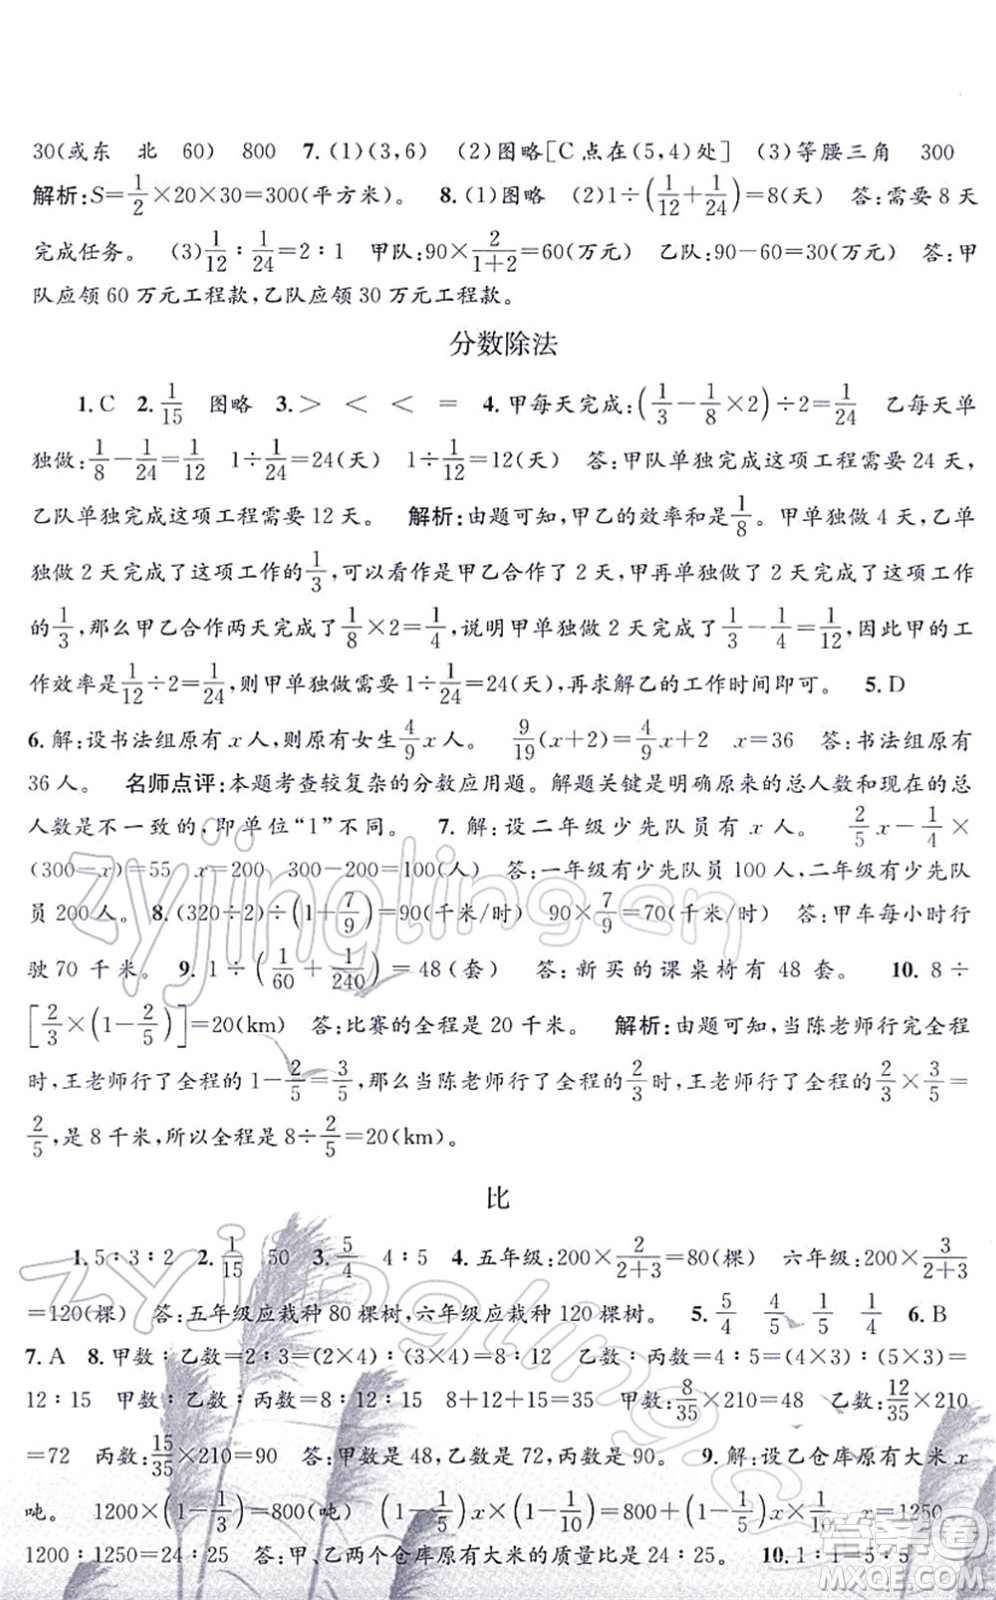 30(或东 北 60) 800 7. (1)(3,6) (2)图略[C点在(5,4)处] (3)等腰三角 300
解析:S=1/2×20×30=300(平方米)。 8. (1)图略 (2)1÷(1/12+1/24)=8(天) 答:需要 8 天
完成任务。 (3)1/12∶1/24=2∶1 甲队:90×2/(1+2)=60(万元) 乙队:90-60=30(万元) 答:甲
队应领 60 万元工程款,乙队应领 30 万元工程款。
分数除法
1. C 2. 1/15 图略 3. > < < = 4. 甲每天完成:(1/3-1/8×2)÷2=1/24 乙每天单
独做:1/8-1/24=1/12 1÷1/24=24(天) 1÷1/12=12(天) 答:甲队单独完成这项工程需要 24 天,
乙队单独完成这项工程需要 12 天。 解析:由题可知,甲乙的效率和是1/8。甲单独做 4 天,乙单
独做 2 天完成了这项工作的1/3,可以看作是甲乙合作了 2 天,甲再单独做 2 天完成了这项工作
的1/3,那么甲乙合作两天完成了1/8×2=1/4,说明甲单独做 2 天完成了1/3-1/4=1/12,因此甲的工
作效率是1/12÷2=1/24,则甲单独做需要 1÷1/24=24(天),再求解乙的工作时间即可。 5. D
6. 解:设书法组原有 x 人,则原有女生4/9x 人。 9/19(x+2)=4/9x+2 x=36 答:书法组原有
36 人。 名师点评:本题考查较复杂的分数应用题。解题关键是明确原来的总人数和现在的总
人数是不一致的,即单位“1”不同。 7. 解:设二年级少先队员有 x 人。 2/5x-1/4×
(300-x)=55 x=200 300-200=100(人) 答:一年级有少先队员 100 人,二年级有少先队
员 200 人。 8. (320÷2)÷(1+7/9)=90(千米/时) 90×7/9=70(千米/时) 答:甲车每小时行
驶 70 千米。 9. 1÷(1/60+1/240)=48(套) 答:新买的课桌椅有 48 套。 10. 8÷
[2/3×(1-2/5)]=20(km) 答:比赛的全程是 20 千米。 解析:由题可知,当陈老师行完全程
时,王老师行了全程的 1-2/5=3/5,那么当陈老师行全程的2/3时,王老师行了全程的2/3×3/5=
2/5,是 8 千米,所以全程是 8÷2/5=20(km)。
比
1. 5∶3∶2 2. 1/15 50 3. 5/4 4∶5 4. 五年级:200×2/(2+3)=80(棵) 六年级:200×3/(2+3)
=120(棵) 答:五年级应栽种 80 棵树,六年级应栽种 120 棵树。 5. 5/4 4/5 1/5 1/4 6. B
7. A 8. 甲数∶乙数=2∶3=(2×4)∶(3×4)=8∶12 乙数∶丙数=4∶5=(4×3)∶(5×3)=
12∶15 甲数∶乙数∶丙数=8∶12∶15 8+12+15=35 甲数:8/35×210=48 乙数:12/35×210
=72 丙数:15/35×210=90 答:甲数是 48,乙数是 72,丙数是 90。 9. 解:设乙仓库原有大米 x
吨。 1200×(1-1/3)=800(吨) (1-1/5)x×(1-1/10)=800+(1-1/5)x×1/10 x=1250
1200∶1250=24∶25 答:甲、乙两个仓库原有大米的质量比是 24∶25。 10. 1∶1=5∶5
zyjingling.cn
zyjingling.cn
答案圈
MXQE.COM